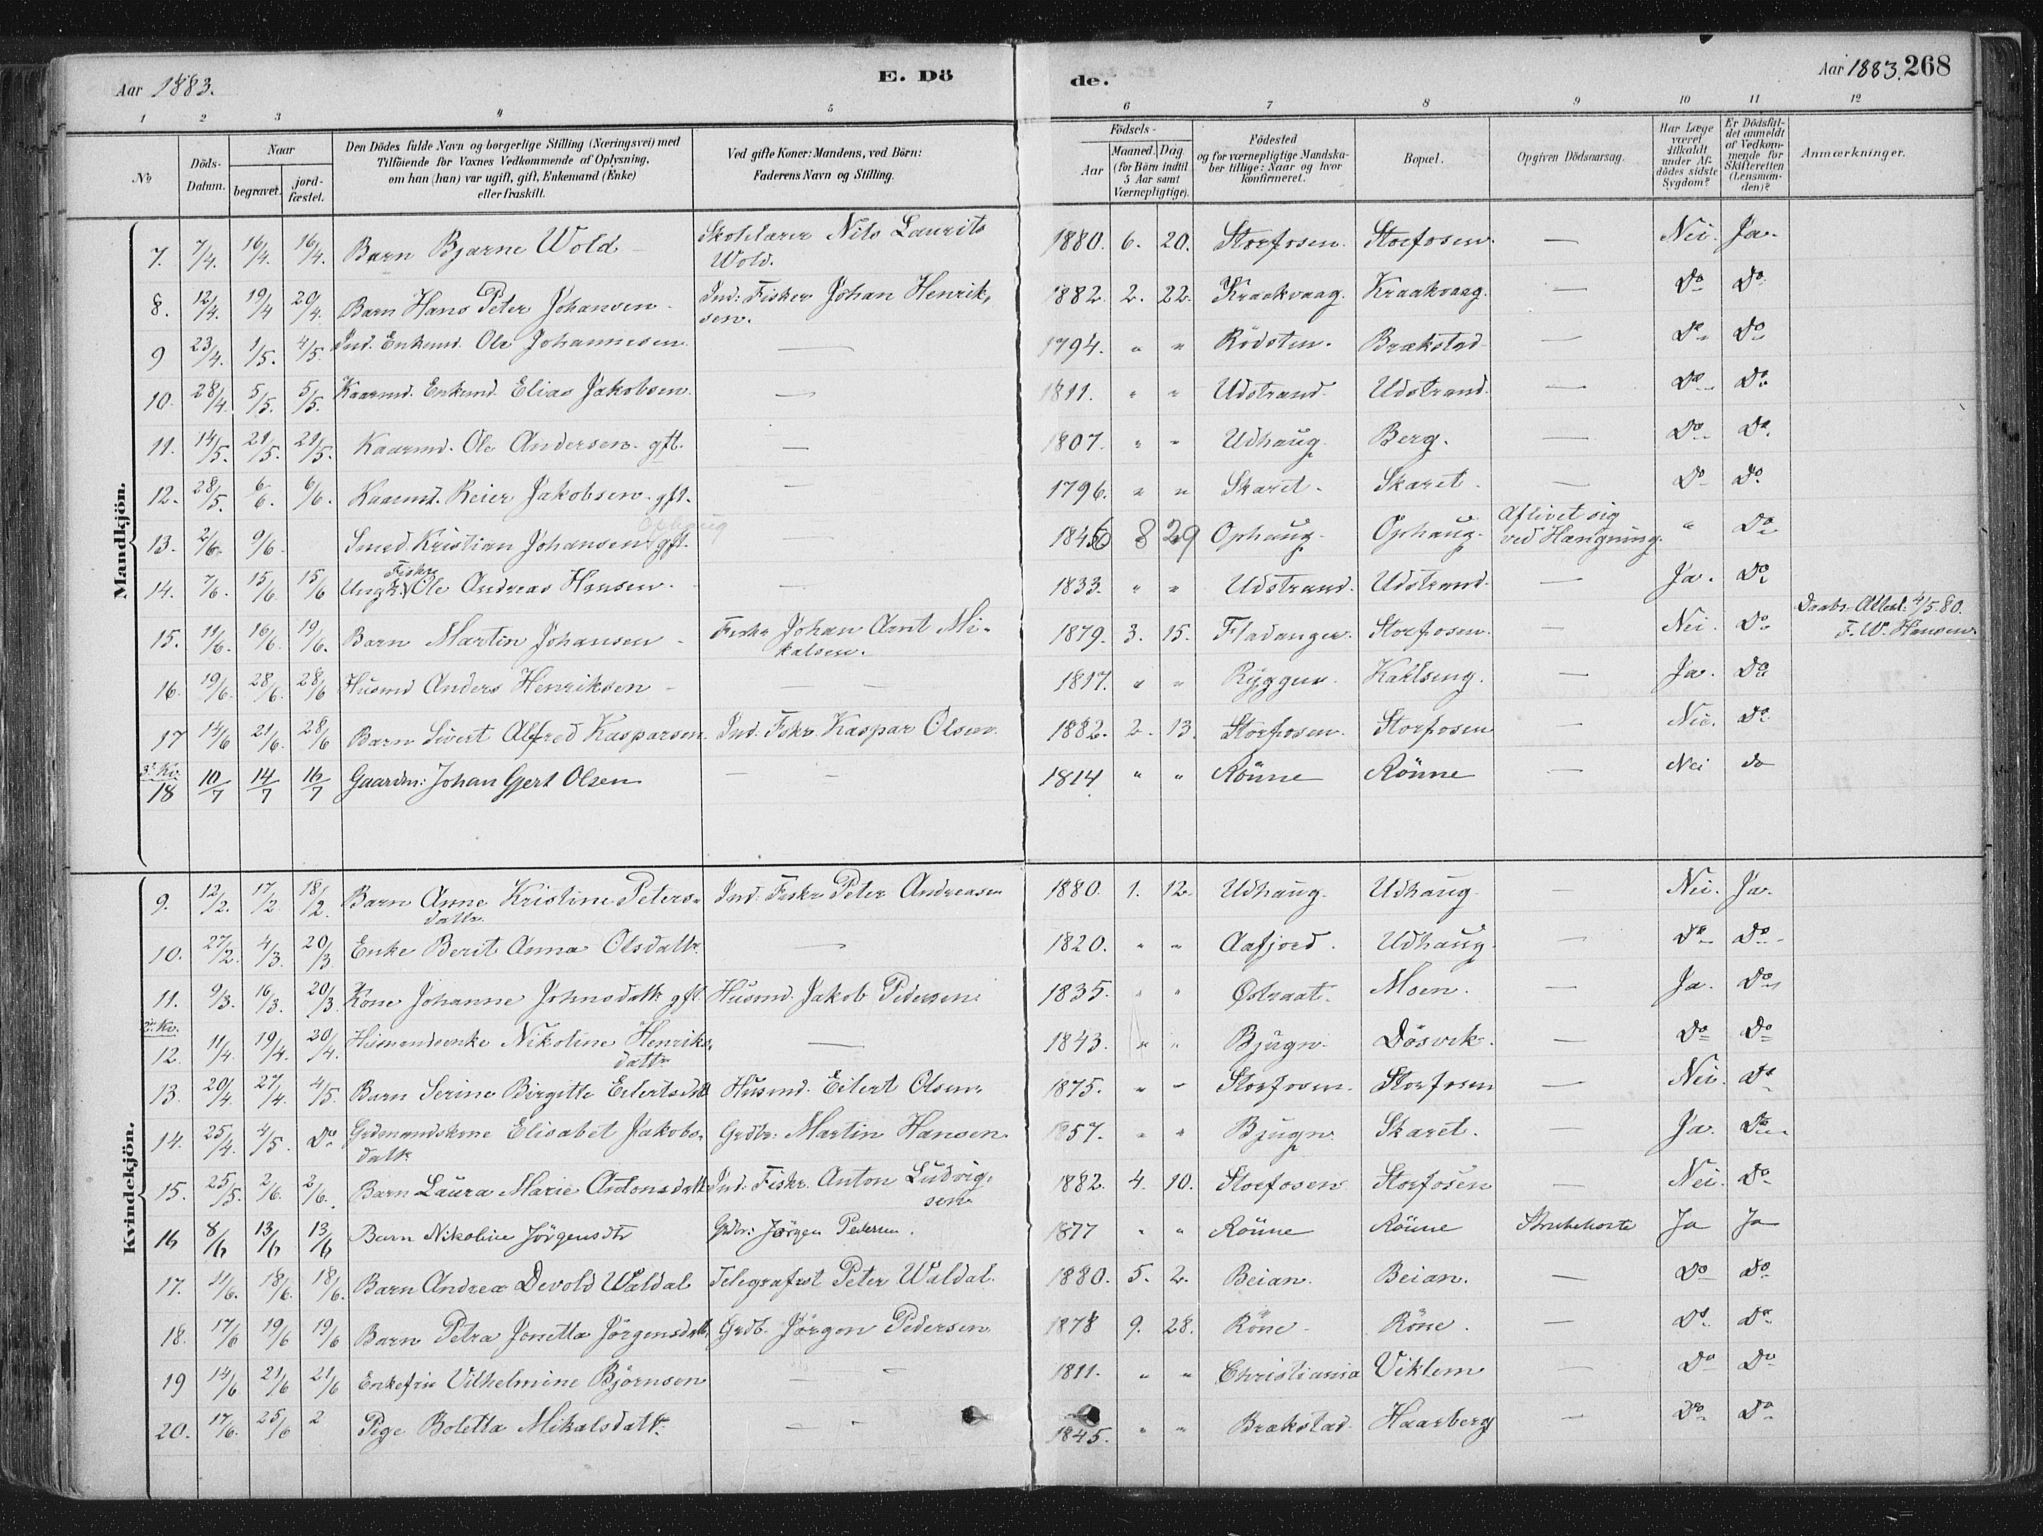 Aar 1883. E. Dö de. Aar 1883. 268
1 2 3 4 5 6 7 8 9 10 11 12
No
Döds-Datum.
Naar
begravet. jord-fæstet.
Den Dödes fulde Navn og borgerlige Stilling (Næringsvei) med
Tilföiende for Voxnes Vedkommende af Oplysning,
om han (hun) var ugift, gift, Enkemand (Enke)
eller fraskilt.
Ved gifte Koner: Mandens, ved Börn:
Faderens Navn og Stilling.
Födsels-
Aar Maaned. Dag
(for Börn indtil
5 Aar samt
Værnepligtige).
Födested
og for værnepligtige Mandska-
ber tillige: Naar og hvor
konfirmeret.
Bopæl.
Opgiven Dödsaarsag.
Har Læge
været
tilkaldt
under Af-
dödes sidste
Sygdom?
Er Dödsfal-
det anmeldt
af Vedkom-
mende for
Skifteretten
(Lensman-
den)?
Anmærkninger.
Mandkjön.
7. 7/4. 16/4. 16/4. Barn Bjarne Wold – Skolelærer Nils Laurits Wold. 1880. 6. 20. Storfosen. Storfosen. — Nei. Ja.
8. 12/4. 19/4 20/4. Barn Hans Peter Johansen – Ind: Fisker Johan Henriksen. 1882. 2. 22. Kraakvaag. Kraakvaag. — Do Do
9 23/4. 1/5. 4/5. Ind. Enkemd. Ole Johannesen — 1794. " " Rödsten. Brækstad — Do Do
10. 28/4. 5/5. 5/5. Kaarmd. Enkemd. Elias Jakobsen. — 1811. " " Udstrand. Udstrand. — Do Do
11. 14/5. 21/5. 21/5. Kaarmd. Ole Andersen. gft. — 1807. " " Udhaug. Berg. — Do Do
12. 28/5. 6/6. 6/6. Kaarmd. Reier Jakobsen. gft. — 1796. " " Skaret. Skaret. — Do Do
13. 2/6. 9/6. Smed Kristian Johansen Ophaug gft. — 8 29 Ophaug. Ophaug. Aflivet sig ved Hængning. " Do
14. 7/6. 15/6. 15/6 Ungk. Fiskr Ole Andreas Hansen. — 1833. " " Udstrand. Udstrand. — Ja. Do
15. 11/6. 16/6. 19/6. Barn Martin Johansen – Fiskr Johan Arnt Mikalsen. 1879. 3. 15. Fladanger. Storfosen. — Nei. Do Daabs-Attest: 4/5 80. F. W. Hansen.
16. 19/6. 28/6. 28/6 Husmd Anders Henriksen – — 1817. " " Ryggen. — Ja. Do
17 14/6 21/6. 28/6 Barn Sivert Alfred Kasparsen Ind. Fiskr. Kaspar Olsen. 1882. 2. 13. Storfosen. Storfosen — Nei. Do
3' Kv. 18 10/7 14/7 16/7 Gaardm: Johan Gjert Olsen — — 1814. " " Rönne Rönne Nei do
Kvindekjön.
9. 12/2. 17/2 18/2. Barn Anne Kristine Petersdattr. Ind: Fiskr Peter Andreasen 1880. 1. 12. Udhaug. Udhaug. — Nei. Ja.
10. 27/2. 4/3. 20/3 Enke Berit Anna Olsdattr. — 1820. " " Aafjord. Udhaug. — Do Do
11. 9/3. 16/3. 20/3. Kone Johanne Johnsdattr gft Husmd. Jakob Pedersen. 1835. " " Østraat. Moen. — Ja. Do
2. Kv. 12. 11/4. 19/4. 30/4. Husmandsenke Nikoline Henriksdattr — 1843. " " Bjugn. Dösvik. — Do Do
13. 20/4. 27/4. 4/5. Barn Serine Birgitte Eilertsdtt Husmd. Eilert Olsen. 1875. " " Storfosen. Storfosen — Nei. Do
14. 25/4. 4/5. Do Grdmandskone Elisabet Jakobsdattr Grdbr. Martin Hansen. 1857. " " Bjugn. Skaret. — Ja. Do
15. 25/5. 2/6. 2/6. Barn Laura Marie Antonsdattr Ind. Fiskr. Anton Ludvigsen. 1882. 4. 10. Storfosen Storfosen — Nei. Do
16 8/6 13/6 13/6 Barn Nikoline Jörgensdtr Grdbr: Jörgen Pedersen. 1877 " " Rönne Rönne Strubehoste Ja Ja
17. 11/6. 18/6. 18/6. Barn Andrea Devold Waldal Telegrafist Peter Waldal. 1880. 5. 2. Beian. Beian. — Do Do
18. 17/6 19/6 19/6 Barn Petra Jonetta Jörgensdattr Grdb. Jörgen Pedersen 1878 9. 28. Röne Röne. — Do Do
19 14/6 21/6 21/6 Enkefru Vilhelmine Björnsen — — 1811. " " Christiania Viklem — Do Do
20. 17/6. 25/6 2 Pige Boletta Mikalsdattr. — — 1845. " " Brækstad. Haarberg — Do Do